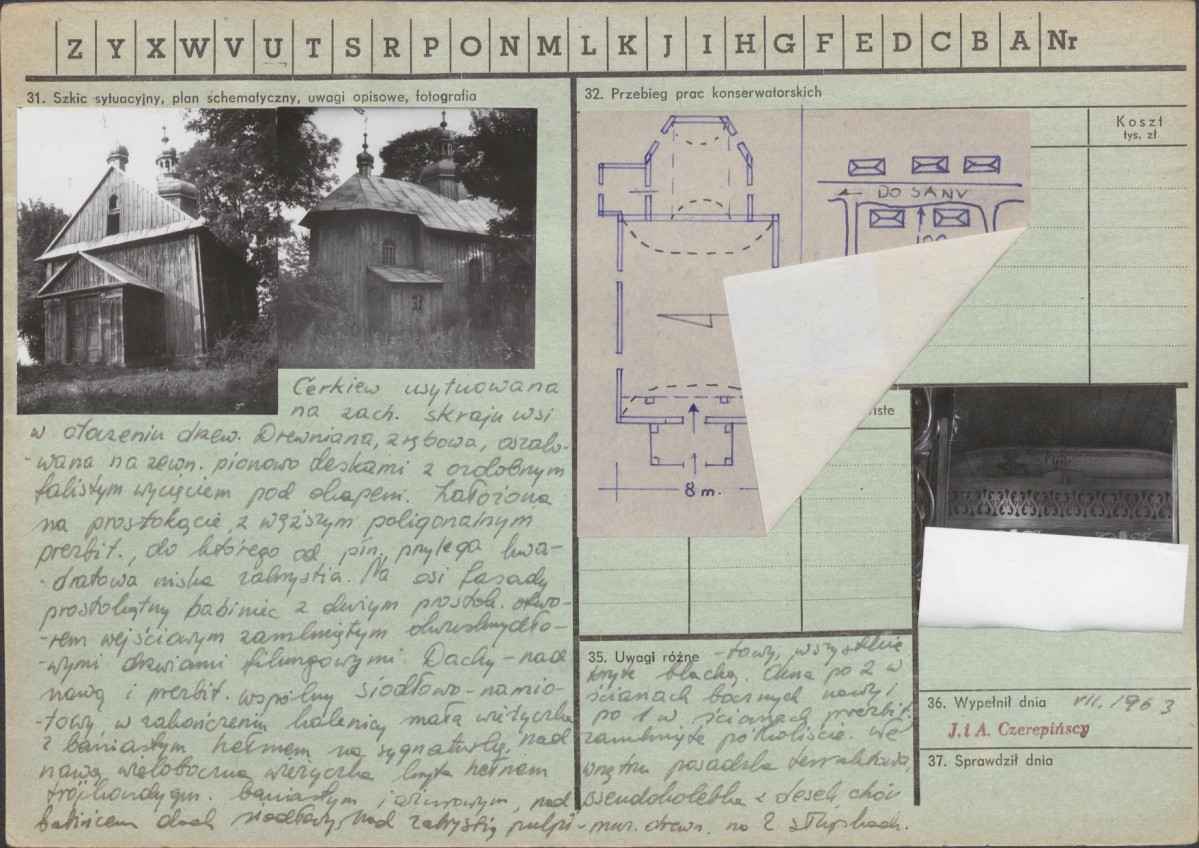 Z Y X W V U T S R P O N M L K J I H G F E D C B A Nr
31. Szkic sytuacyjny, plan schematyczny, uwagi opisowe, fotografia
Cerkiew usytuowana
na zach. skraju wsi
w otoczeniu drzew. Drewniana, zrębowa, oszalo-
-wana na zewn. pionowo deskami z ozdobnym
falistym wycięciem pod okapem. Założona
na prostokącie, z węższym poligonalnym
prezbit., do którego od płn. przylega kwa-
-dratowa niska zakrystia. Na osi fasady
prostokątny babiniec z dużym prostok. otwo-
-rem wejściowym zamkniętym dwuskrzydło-
-wymi drzwiami filungowymi. Dachy - nad
nawą i prezbit. wspólny siodłowo-namio-
-towy, w zakończeniu kalenicy mała wieżyczka
z baniastym hełmem na sygnaturkę, nad
nawą wieloboczna wieżyczka kryta hełmem
trójkondygn. baniastym, nad
babińcem dach siodłowy, nad zakrystią pulpi-
32. Przebieg prac konserwatorskich
Koszt
tys. zł
DO SANU
100
8 m.
iste
35. Uwagi różne
-towy, wszystkie
kryte blachą. Okna po 2 w
ścianach bocznych nawy i
po 1 w ścianach prezbit.
zamknięte półkoliście. We
wnętrzu posadzka terrakotowa,
pseudokolebka z desek, chór
muz. drewn. na 2 słupkach.
36. Wypełnił dnia VII. 1963
J. i A. Czerepińscy
37. Sprawdził dnia